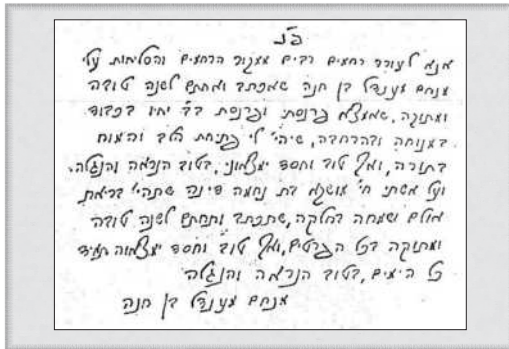 פ"נ
אנא לעורר רחמים רבים ממקור הרחמים והסליחות עלי
מנחם מענדל בן חנה שאכתב ואחתם לשנה טובה
ומתוקה, שאמצא פרנסתי ופרנסת ב"ב יחיו בכבוד
במנוחה ובהרחבה, שיהי' לי פתיחת הלב והמוח
בתורה, ואך טוב וחסד ימצאוני, בטוב הנראה והנגלה.
ועל אשתי חי' מושקא בת נחמה דינה שתהי' בריאת
אולם ושמחה בחלקה, שתכתב ותחתם לשנה טובה
ומתוקה בכל הפרטים, ואך טוב וחסד ימצאוה תמיד
כל הימים, בטוב הנראה והנגלה
מנחם מענדל בן חנה